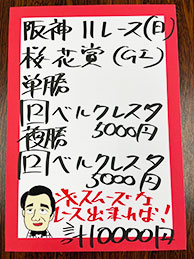 阪神11レース(日)
桜花賞(GI)
単勝
12ベルクレスタ
5000円
複勝
12ベルクレスタ
5000円
スムーズな
レース出来れば!
計10000円